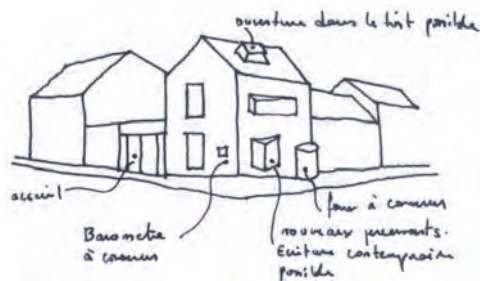 ouverture dans le toit possible
accueil
Baromètre
à conserver
four à conserver
nouveaux percements.
Ecriture contemporaine
possible